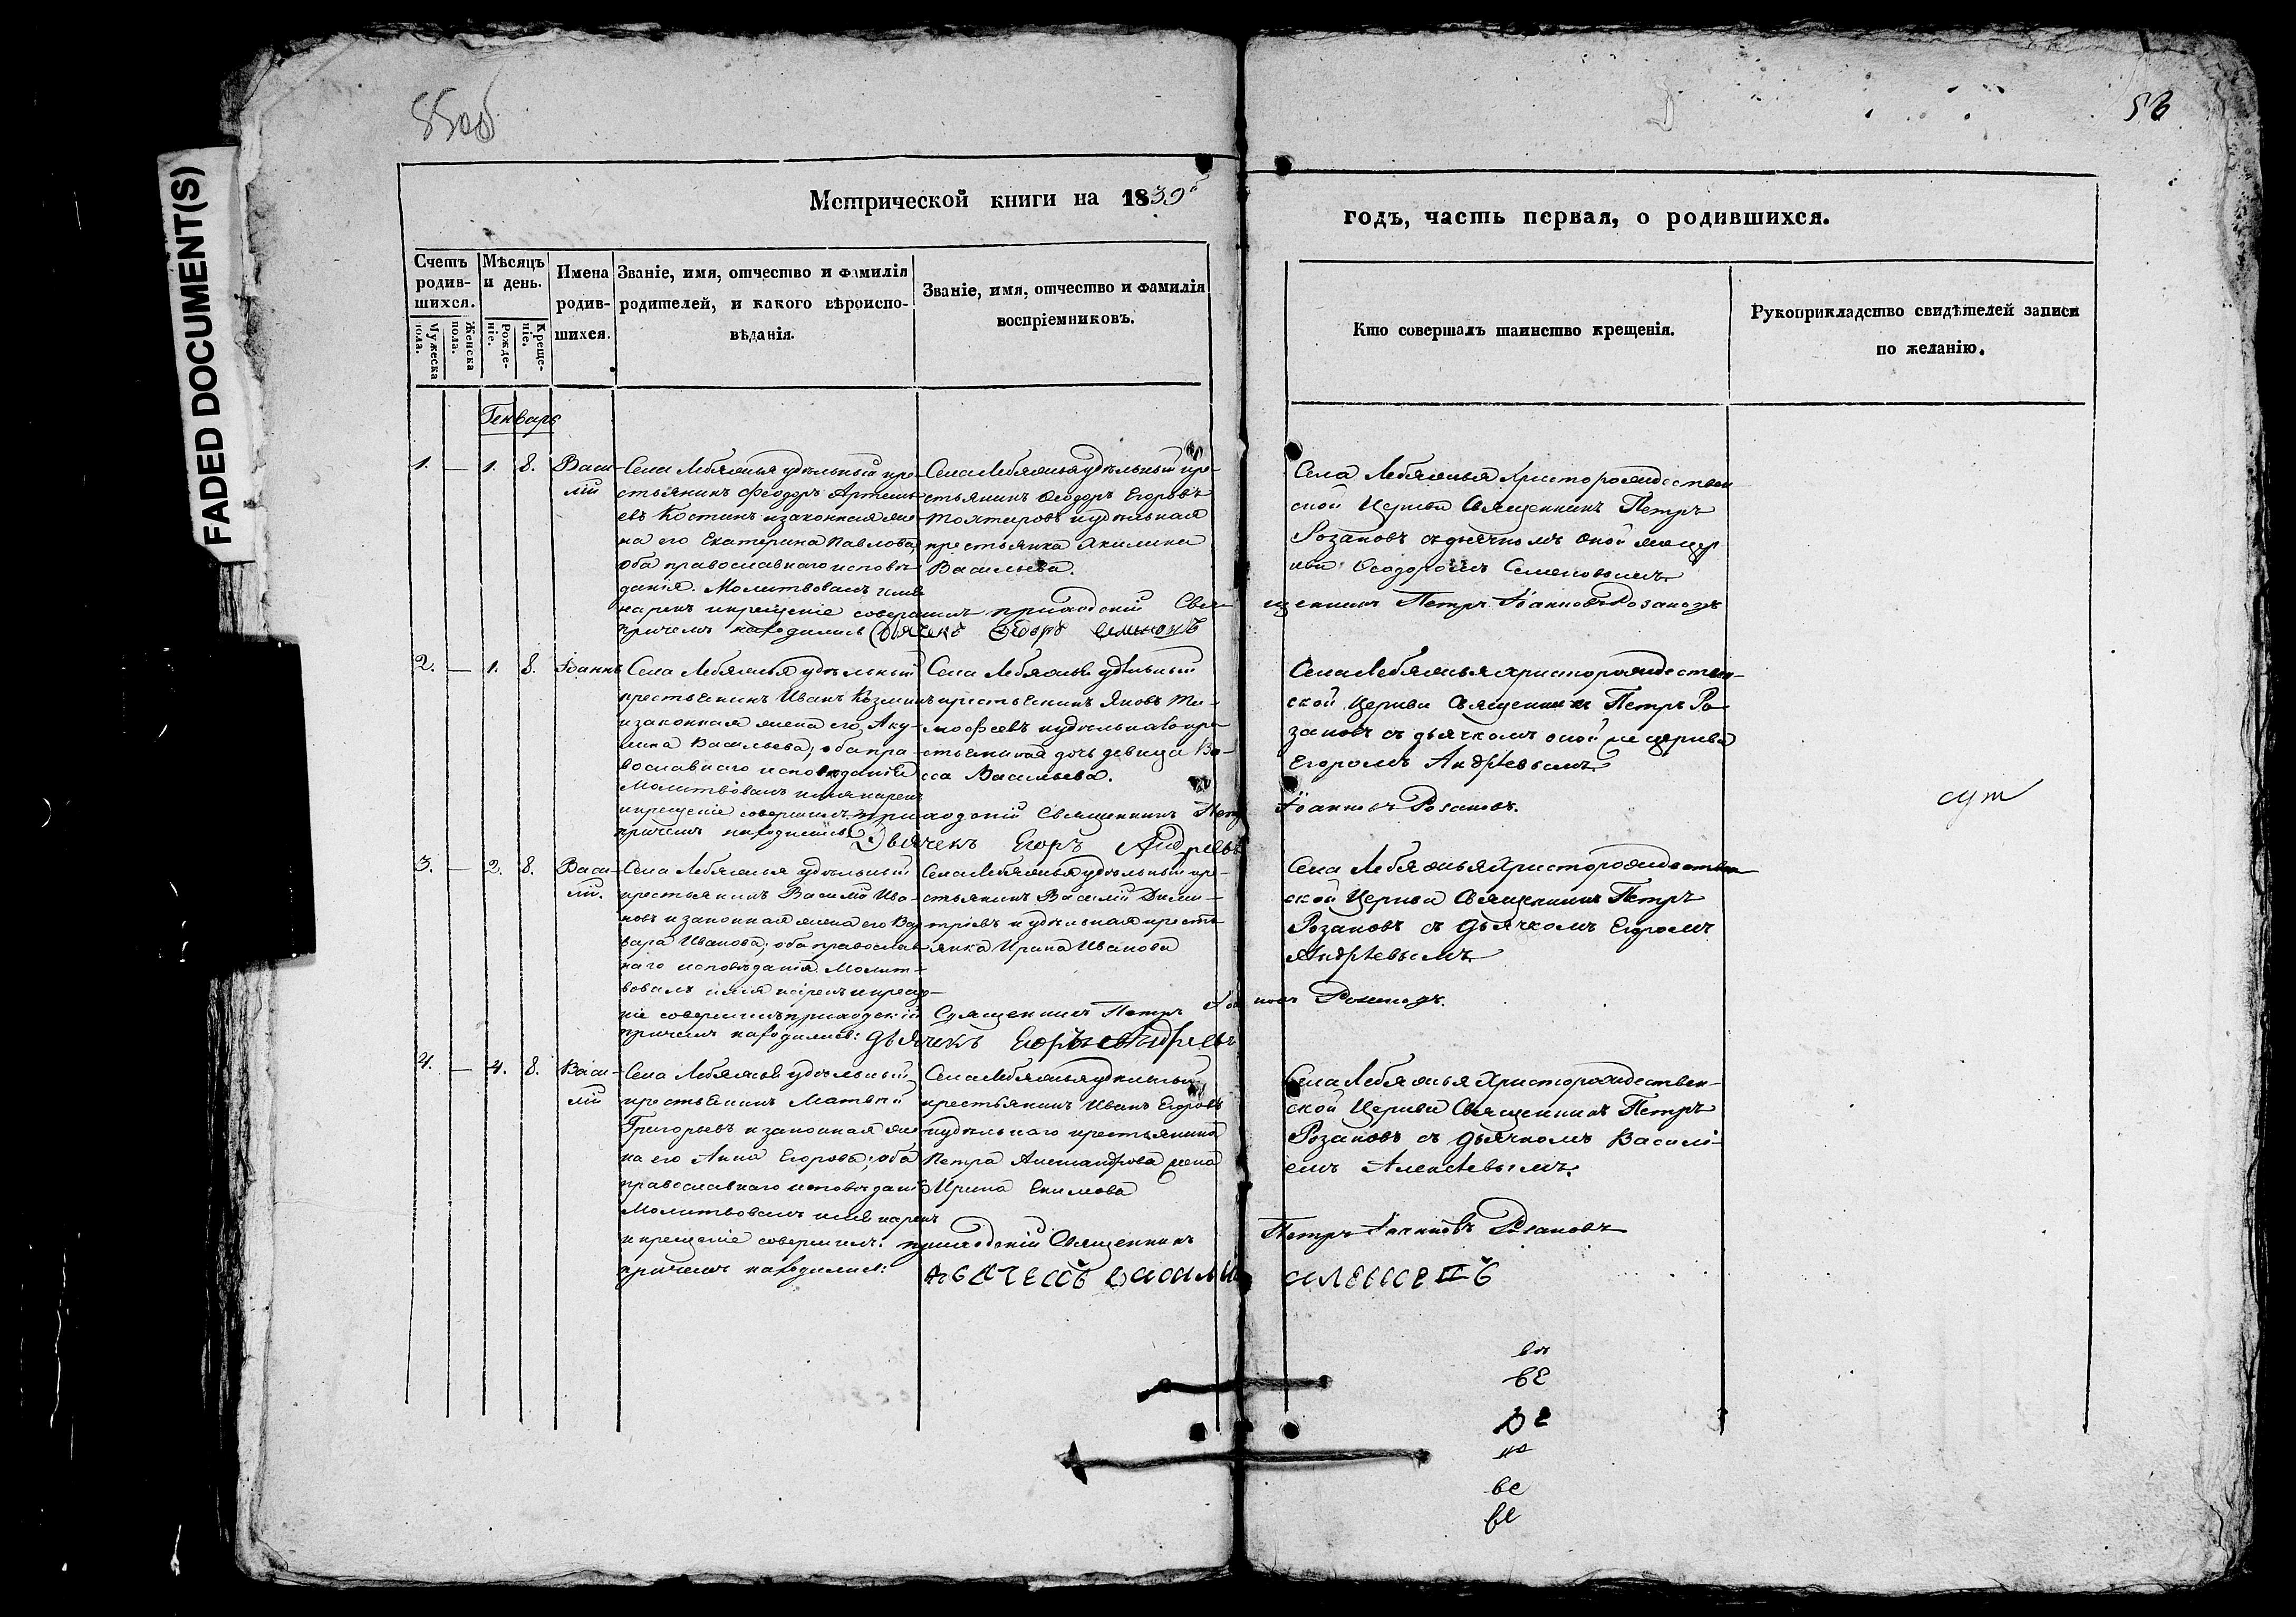 FADED DOCUMENT(S)
Метрической книги на 1839
годъ, часть первая, о родившихся.
Счетъ родив-шихся.
Мужеска пола.
Женска пола.
Мѣсяцъ и день.
Рожде-ніе.
Креще-ніе.
Имена
родив-
шихся.
Званіе, имя, отчество и фамилія
родителей, и какого вѣроиспо-
вѣданія.
Званіе, имя, отчество и фамилія
воспріемниковъ.
Кто совершалъ таинство крещенія.
Рукоприкладство свидѣтелей записи
по желанію.
Генварь
1. — 1. 8. Васи-
лій
Села Лебяжья удѣльный кре-
стьянинъ Феодоръ Артемь-
евъ Костинъ и законная же-
на его Екатерина Павлова,
оба православнаго исповѣ-
данія. Молитвовалъ имя
нарекъ и крещеніе совершилъ приходскій Свя-
щенникъ Петръ Іоанновъ Розановъ
причемъ находились Дьячекъ Ѳеоръ Семеновъ
Села Лебяжья удѣльный кре-
стьянинъ Ѳеодоръ Егоровъ
и удѣльная
крестьянка Акилина
Васильева.
Села Лебяжья Христорождествен
ской Церкви Священникъ Петръ
Розановъ съ дьячкомъ оной же цер
кви Ѳеодоромъ Семеновымъ
2. — 1. 8. Іоаннъ
Села Лебяжья удѣльный
крестьянинъ Иванъ Козминъ
и законная жена его Аку-
лина Васильева, оба пра-
вославнаго исповѣданія
Молитвовалъ имя нарекъ
и крещеніе совершилъ приходскій Священникъ Петръ
Іоанновъ Розановъ.
причемъ находились: Дьячекъ Егоръ Андреевъ
Села Лебяжья удѣльный
крестьянинъ Яковъ Ти-
мофеевъ и удѣльнаго кре-
стьянина дочь девица Ва-
сса Васильева.
Села Лебяжья Христорождествен-
ской Церкви Священникъ Петръ Ро-
зановъ съ дьячкомъ оной же церкви
Егоромъ Андрѣевымъ
3. — 2. 8. Васи-
лій.
Села Лебяжья удѣльный
крестьянинъ Василій Ива-
новъ и законная жена его Вар
вара Иванова; оба православ
наго исповѣданія. Молит-
вовалъ имя нарекъ и креще-
ніе совершилъ приходскій Священникъ Петръ Іоан
новъ Розановъ.
причемъ находились: Дьячекъ Егоръ Андреевъ
Села Лебяжья удѣльный кре-
стьянинъ Василій Дими-
тріевъ и удѣльная кресть
янка Ирина Иванова
Села Лебяжья Христорождествен
ской Церкви Священникъ Петръ
Розановъ съ дьячкомъ Егоромъ
Андрѣевымъ
4. — 4. 8. Васи-
лій
Села Лебяжья удѣльный
крестьянинъ Матвѣй
Григорьевъ и законная же-
на его Анна Егорова; оба
православнаго исповѣданія
Молитвовалъ имя нарекъ
и крещеніе совершилъ: приходскій Священникъ
Петръ Іоанновъ Розановъ
причемъ находились:
дьячекъ Василій Алексеевъ
Села Лебяжья удѣльный
крестьянинъ Иванъ Егоровъ
и удѣльнаго крестьянина
Петра Александрова жена
Ирина Екимова
Села Лебяжья Христорождествен-
ской Церкви Священникъ Петръ
Розановъ съ дьячкомъ Василі-
емъ Алексѣевымъ.